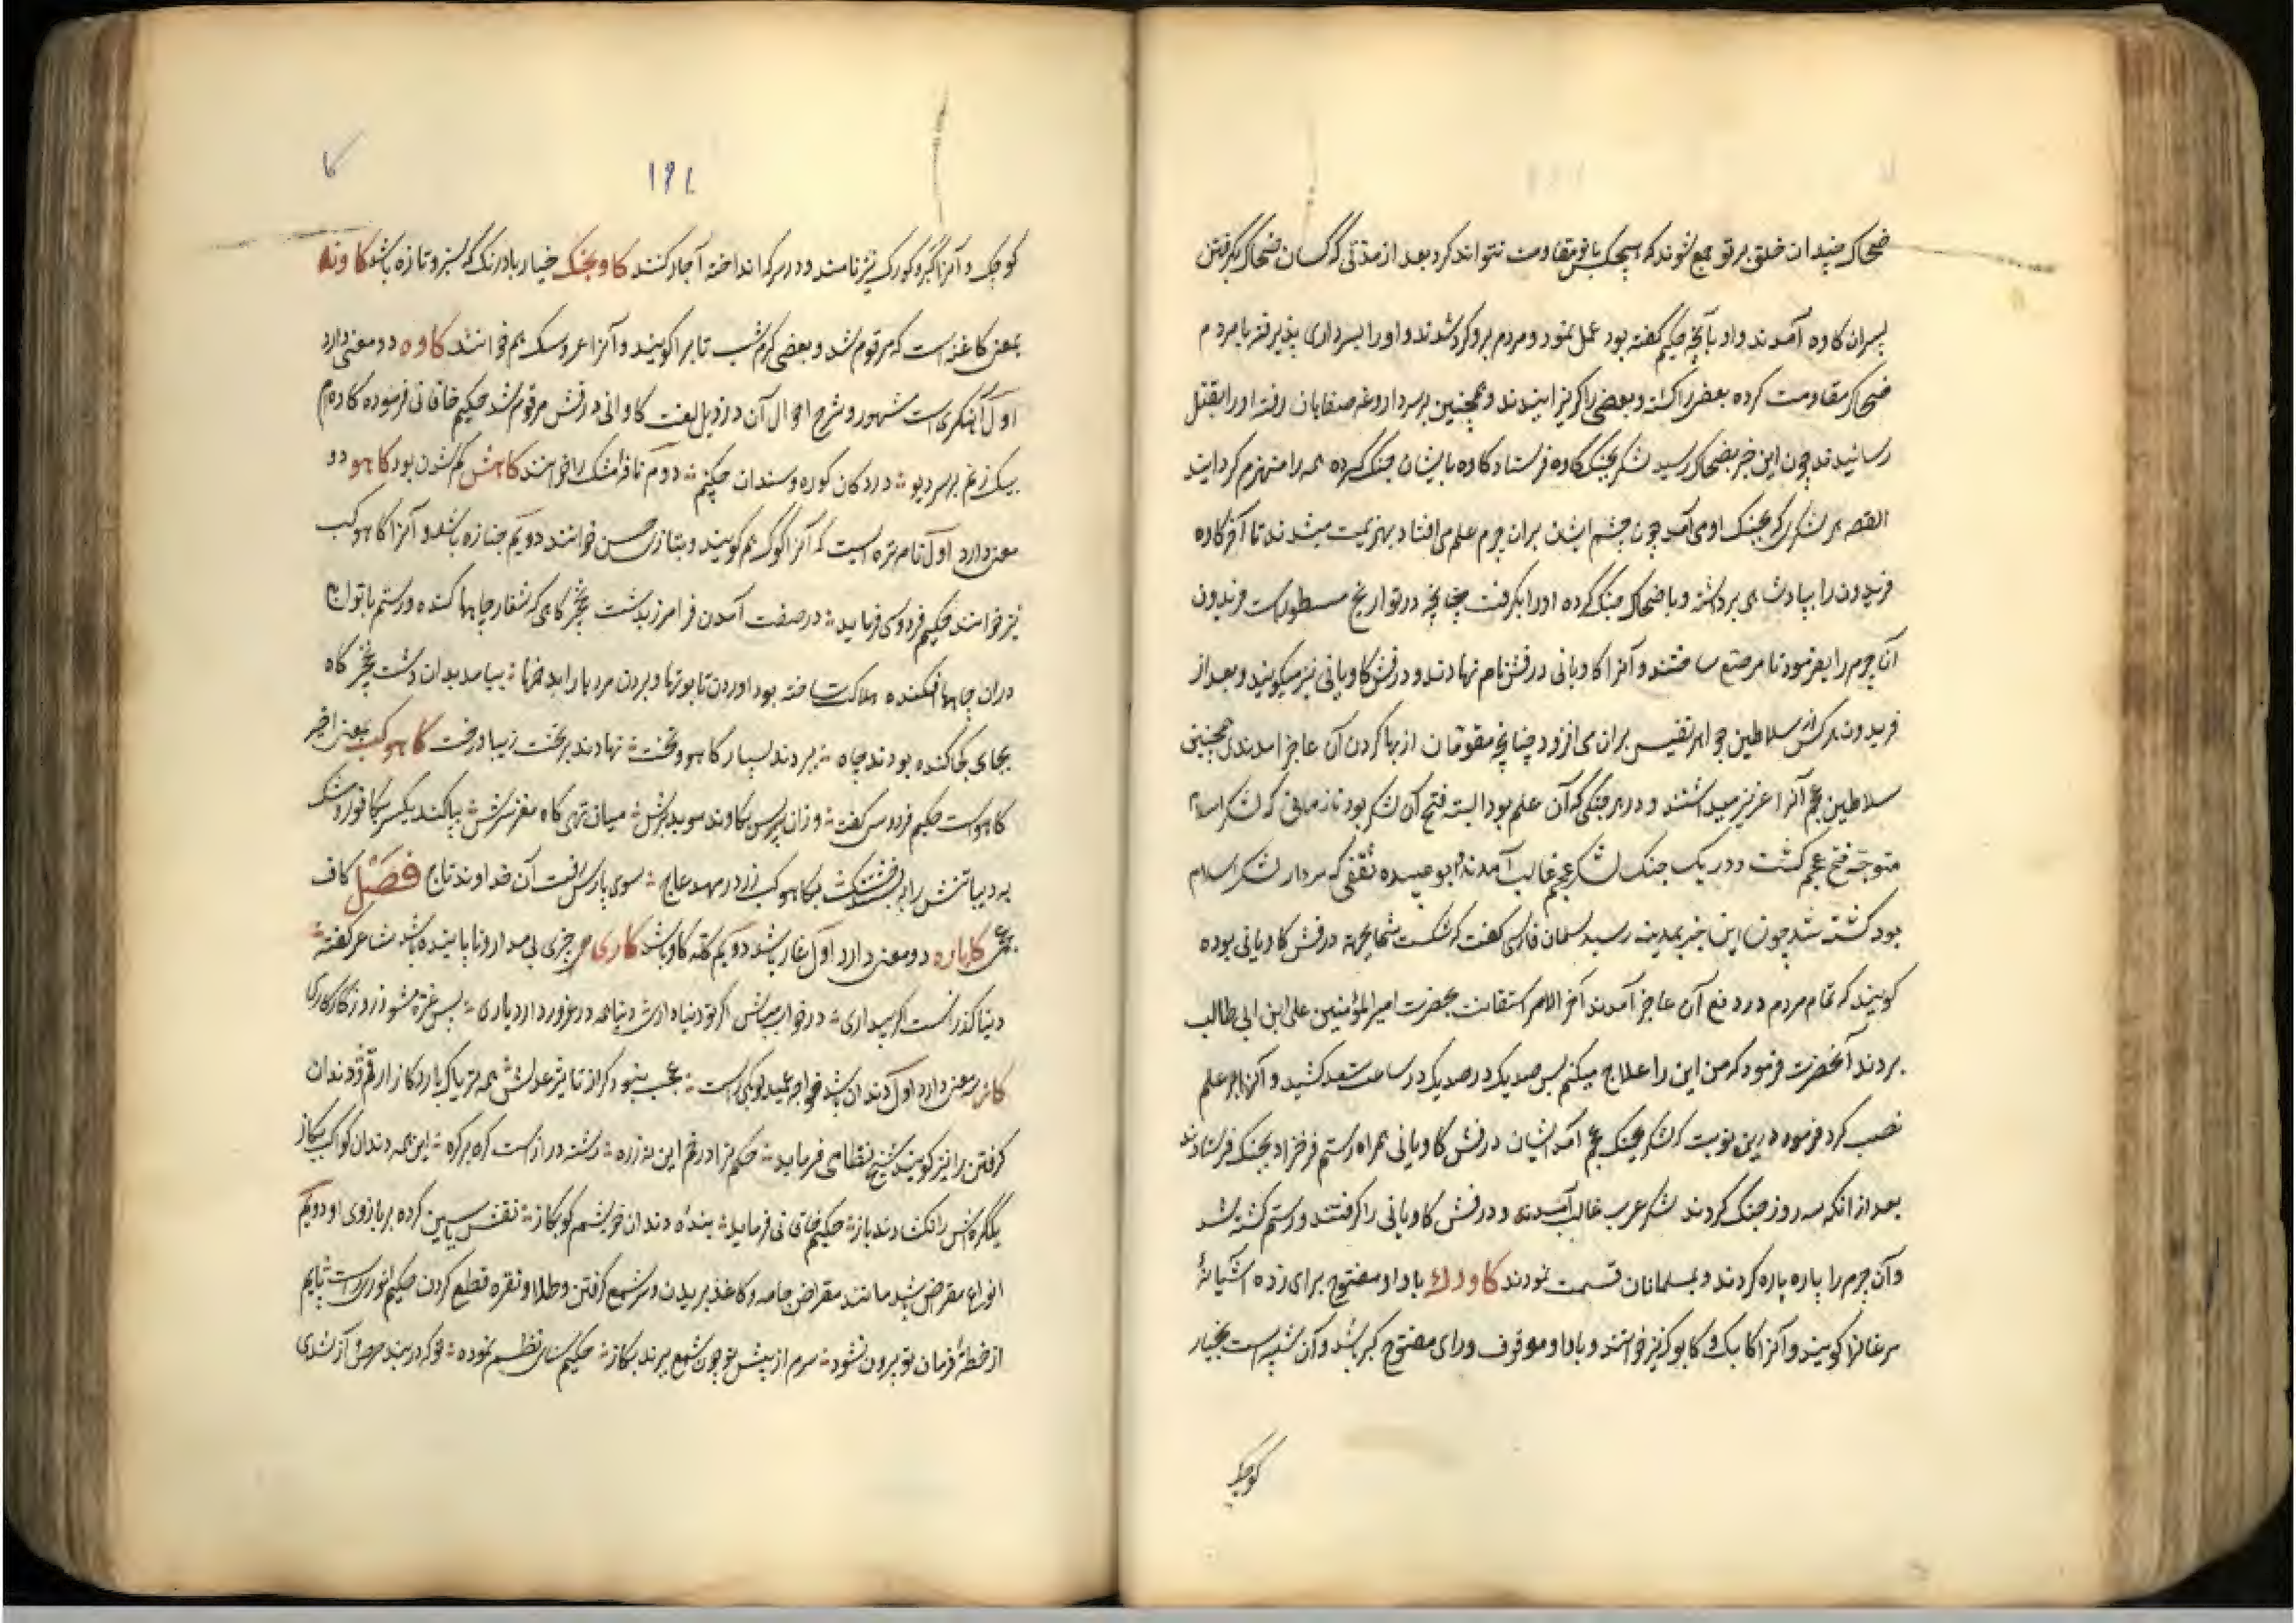 ضحاک چندان خلق بر تو جمع شوند که هیچکس با تو مقاومت نتواند کرد بعد از مدتی که کسان ضحاک بگرفتن
پسران کاوه آمدند و او بآنچه حکیم گفته بود عمل نمود و مردم برو کرد شدند و او را بسرداری پذیرفته با مردم
ضحاک مقاومت کرده بعضی را کشته و بعضی را کریزانیدند و همچنین بر سر داروغه صفاهان رفته او را بقتل
رسانیدند چون این خبر بضحاک رسید لشکر بجنک کاوه فرستاد کاوه با ایشان جنک کرده همه را منهزم کردانید
القصه هر لشکری که بجنک او می آمد چون چشم ایشان بران چرم علم می افتاد بهزیمت میشدند تا آخر کاوه
فریدون را بپادشاهی برداشته و با ضحاک جنک کرده او را بکرفت چنانچه در تواریخ مسطورست فریدون
آن چرم را بفرمود تا مرصع ساختند و آنرا کاویانی درفش نام نهادند و درفش کاویانی نیز میکویند و بعد از
فریدون هر کس از سلاطین جواهر نفیس بران می افزود چنانچه مقومان از بها کردن آن عاجز آمدند همچنین
سلاطین عجم آنرا عزیز میداشتند و در هر جنکی که آن علم بود البته فتح آن لشکر بود تا زمانی که لشکر اسلام
متوجه فتح عجم کشت و در یک جنک لشکر عجم غالب آمدند و ابو عبیده ثقفی که سردار لشکر اسلام
بود کشته شد چون این خبر بمدینه رسید سلمان فارسی کفت که شکست شما بجهة درفش کاویانی بوده
کویند که تمام مردم در دفع آن عاجز آمدند آخر الامر استغاثت بحضرت امیر المؤمنین علی ابن ابی طالب
بردند آنحضرت فرمود که من این را علاج میکنم پس صد یک در صد یک در ساعت سعد کشید و آنرا بر علم
نصب کرد فرمود درین نوبت که لشکر بجنک عجم آمد ایشان درفش کاویانی همراه رستم فرخزاد بجنک فرستادند
بعد از انکه سه روز جنک کردند لشکر عرب غالب آمدند و درفش کاویانی را کرفتند و رستم کشته شد
و آن چرم را پاره پاره کردند و بمسلمانان قسمت نمودند کاورک با واو مفتوح برای زده آشیانهٔ
مرغانرا کویند و آنرا کابک و کابوک نیز خوانند و با واو موقوف و رای مفتوح کبر باشد و آن شبیه است بخیار
کوچک
۱۹۱
کوچک و آنرا کبر و کورک نیز نامند و در سرکه انداخته آچار کنند کاونجک خیار بادرنک که سبز و تازه باشد کاونه
بمعنی کاغنه است که مرقوم شد و بعضی کرم شب تاب را کویند و آنرا عروسک هم خوانند کاوه دو معنی دارد
اول آهنکری است مشهور و شرح احوال آن در ذیل لغت کاوانی درفش مرقوم شد حکیم خاقانی فرموده کاوه ام
بیک زخم بر سر دیو در دکان کوره و سندان چکنم دوم نافه مشک را خوانند کاهش کم شدن بود کاهو دو
معنی دارد اول نام تره ایست که آنرا کوک هم کویند و بتازی خس خوانند دویم جنازه باشد و آنرا کاهوکب
نیز خوانند حکیم فردوسی فرماید در صفت آمدن فرامرز بدشت نخچرکاهی که شغاد چاهها کنده و رستم با توابع
دران چاهها افکنده هلاک ساخته بود اوردن تابوتها و بردن مردها را بدخمها بیامد بدان دشت نخچر کاه
بجای کجا کنده بودند چاه ببردند بسیار کاهو و تخت نهادند بر تخت زیبا درخت کاهوکب بمعنی اخیر
کاهوست حکیم فردوسی کفته و زان پس بکاوند سوید برش میان تهی کاه مغز سرش بیاکند یکسر بکافور و مشک
به دیبا تنش را بر خشک بکاهوکب زر در مهد عاج سوی پارس رفت آن خداوند تاج فصل کاف
عجمی کاباره دو معنی دارد اول غار باشد دویم کله کاو باشد کاری هر چیزی بی مدار و ناپاینده باشد شاعر کفته
دنیا کذرانست اکر بیداری در خواب مباش اکر تو دنیا داری دنیا همه در غرور دارد یاری بس غره مشو ز روزکار کاری
کاز سه معنی دارد اول دندان باشد خواجه عمید لوبکی راست عجب نبود کر از تاثیر عدلش همه تریاک بارد کاز ارقم و دندان
کرفتن را نیز کویند شیخ نظامی فرماید حکم ترا در خم این نه زره رشته درازست کره بر کره این همه دندان کواکب بکاز
یکگرهش را نکشادند باز حکیم خاقانی فرماید بنده دندان خویشم کو بکاز نقش یاسین کرده بر بازوی او دویم
انواع مقراض باشد مانند مقراض جامه و کاغذ بریدن و سر شمع کرفتن و طلا و نقره قطع کردن حکیم انوری راست پایم
از خطهٔ فرمان تو بیرون نشود سرم از پیش چو چون شمع ببرند بکاز حکیم سنائی نظم نموده خوکه در بند حرص و آز شدی